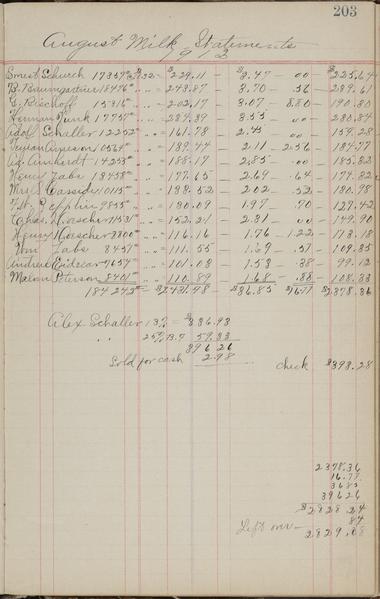 203
August Milk Statements
1912
Ernest Schurch 17357# @ $1.32 = $229.11 - $3.47 - .00 - $225.64
B. Baumgartner 18476# " " = 243.87 - 3.70 - .56 - 239.61
G. Bischoff 15316# " " = 202.17 - 3.07 - 8.80 - 190.30
Herman Funk 17757# " " = 284.39 - 3.55 - .00 - 280.84
Adolf Schaller 12252# " " = 161.78 - 2.45 - .00 - 159.28
" " = 189.44 - 2.11 - 2.56 - 184.77
14253# " " = 188.17 - 2.85 - .00 - 185.32
Henry Tabs 13458# " " = 177.65 - 2.69 - .64 - 174.32
Mrs. J. Cassidy 10115# " " = 133.52 - 2.02 - .52 - 130.98
9855# " " = 130.09 - 1.97 - .70 - 127.42
Chas. Horscher 11531# " " = 152.21 - 2.31 - .00 - 149.90
Henry Horscher 8800# " " = 116.16 - 1.76 - 1.22 - 113.18
Wm Tabs 8457# " " = 111.55 - 1.69 - .51 - 109.35
Andrew 7657# " " = 101.08 - 1.53 - .38 - 99.12
Peterson 8401# " " = 110.89 - 1.68 - .88 - 108.33
184243# = $2431.98 - $36.85 - $16.77 - $2378.36
Alex Schaller 13% = $336.93
" 25% 59.33
396.26
Sold for cash 2.98 check $393.28
2378.36
16.77
36.85
396.26
$2828.24
.84
Left over - 2829.08